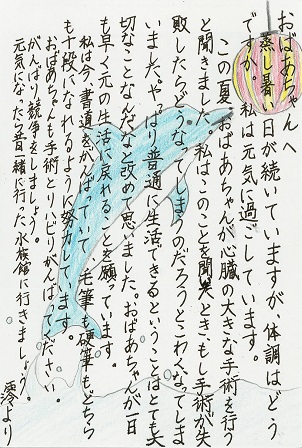 おばあちゃんへ
蒸し暑い日が続いていますが、体調はどう
ですか。私は元気に過ごしています。
この夏、おばあちゃんが心臓の大きな手術を行っ
たと聞きました。私はこのことを聞いたとき、もし手術が失
敗したらどうなってしまうのだろうとこわくなってしま
いました。やっぱり普通に生活できるということはとても大
切なことなんだなと改めて思いました。おばあちゃんが一日
も早く元の生活に戻れることを願っています。
私は今、書道をがんばっていて、毛筆、硬筆もどちら
も十段になれるように努力しています。
おばあちゃんも手術とリハビリがんばってください。
がんばり競争をしましょう。
元気になったら昔一緒に行った水族館に行きましょう。
澪より